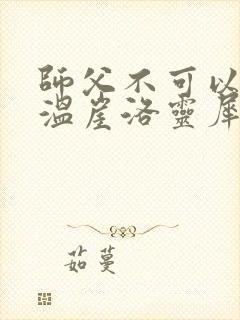 師父不可以
溫崖洛靈犀
茹蔓